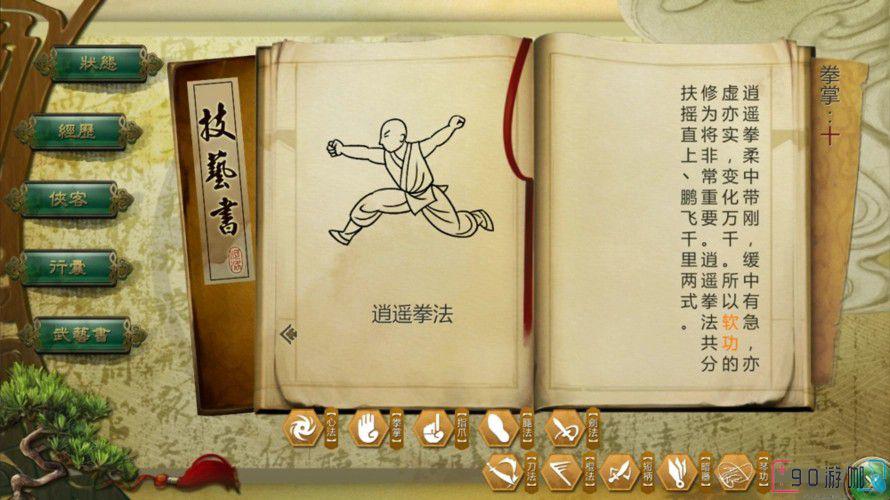 狀態
經歷
俠客
行囊
武藝書
技藝書
逍遥拳法
拳掌：十
逍遥拳柔中带刚，缓中有急，亦
虚亦实，变化万千。所以软功的
修为将非常重要。逍遥拳法共分
扶摇直上、鹏飞千里两式。
【心法】
【拳掌】
【指爪】
【腿法】
【劍法】
【刀法】
【棍法】
【短柄】
【暗器】
【琴功】